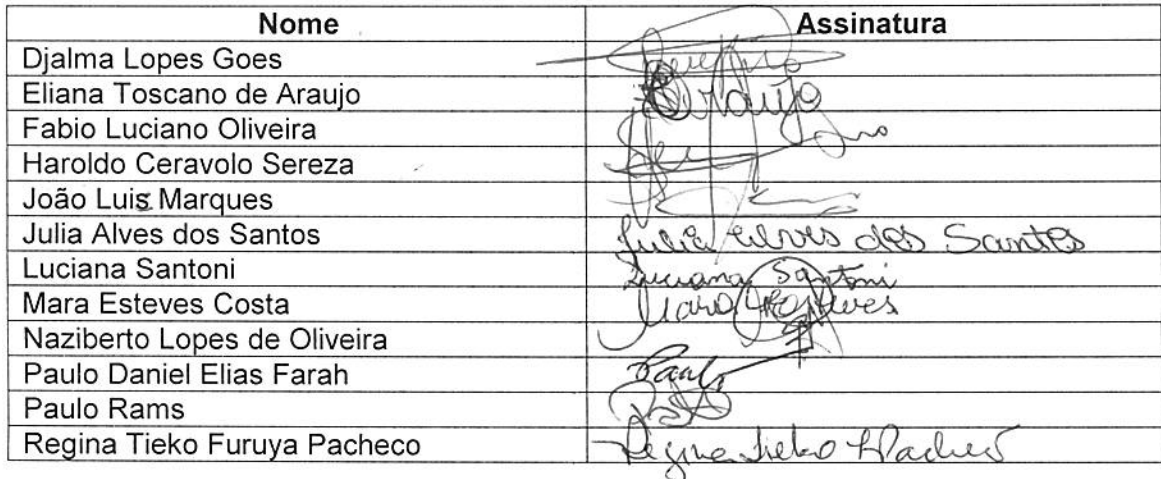 Nome Assinatura
Djalma Lopes Goes
Eliana Toscano de Araujo Araujo
Fabio Luciano Oliveira
Haroldo Ceravolo Sereza
João Luis Marques
Julia Alves dos Santos Julia Alves dos Santos
Luciana Santoni Luciana Santoni
Mara Esteves Costa Mara Esteves
Naziberto Lopes de Oliveira
Paulo Daniel Elias Farah Paulo
Paulo Rams
Regina Tieko Furuya Pacheco Regina Tieko F Pacheco